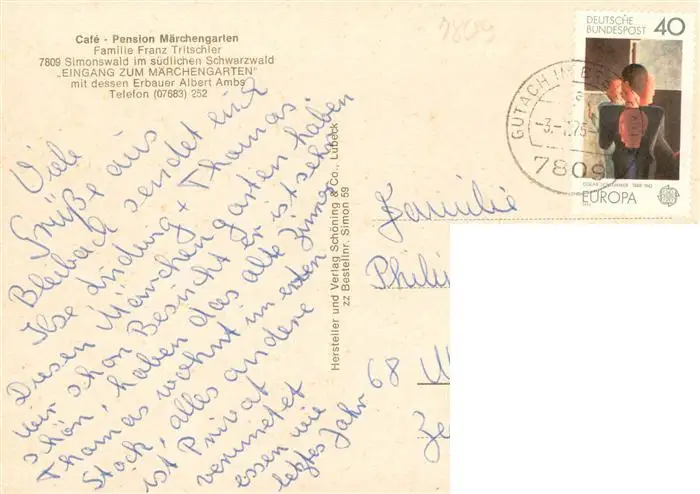 Café - Pension Märchengarten
Familie Franz Tritschler
7809 Simonswald im südlichen Schwarzwald
„EINGANG ZUM MÄRCHENGARTEN"
mit dessen Erbauer Albert Ambs
Telefon (07683) 252
7809
DEUTSCHE
BUNDESPOST 40
EUROPA
GUTACH IM
7809
Viele
Grüße aus
Bleibach sendet euch
Ilse Ludwig + Thomas
Diesen Märchengarten haben
wir schon Besucht er ist sehr
schön, haben das alte Zimmer
Thomas wohnt im ersten
Stock, alles andere
ist Privat
vermietet
essen wie
letztes Jahr
Hersteller und Verlag Schöning & Co., Lübeck
zz Bestellnr. Simon 59
Familie
Philip
68